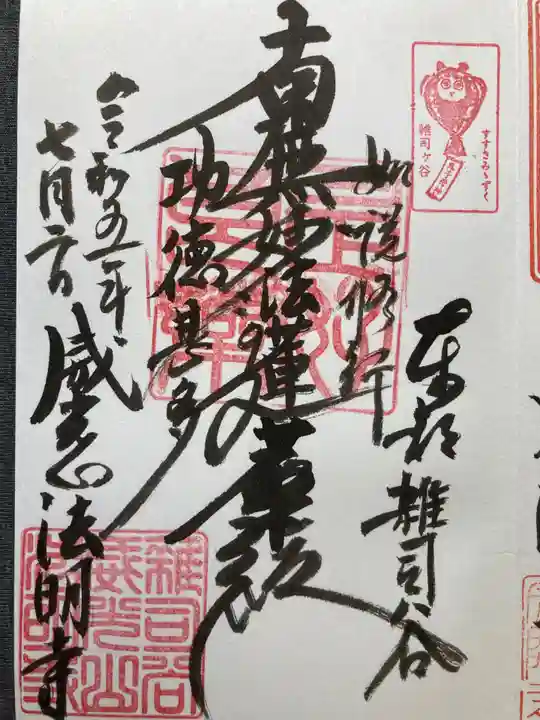 すすきみゝずく
雑司ヶ谷
東都雑司谷
如説修行
南無妙法蓮華経
功徳甚多
令和五年
七月二日
威光山法明寺
雑司谷
威光山
法明寺